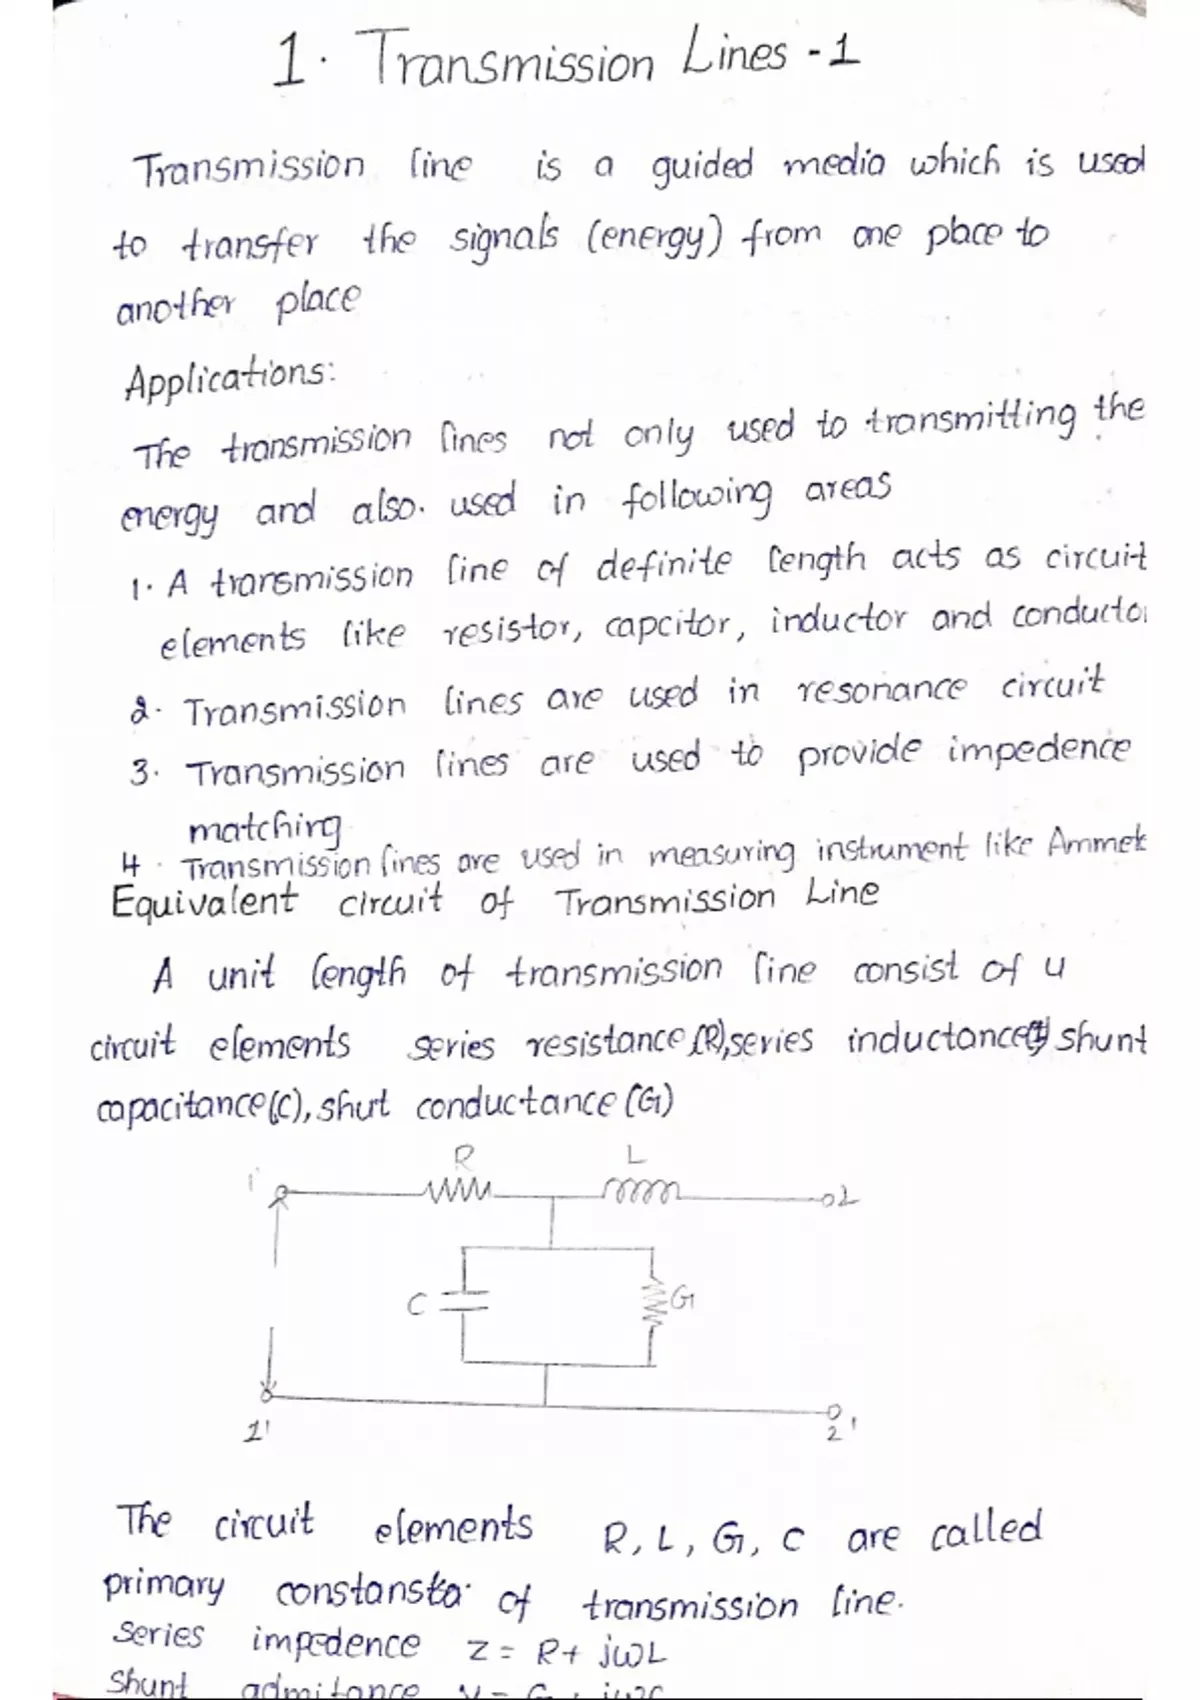 1. Transmission Lines -1
Transmission line is a guided media which is used
to transfer the signals (energy) from one place to
another place
Applications:
The transmission lines not only used to transmitting the
energy and also. used in following areas
1. A transmission line of definite length acts as circuit
elements like resistor, capcitor, inductor and conductor
2. Transmission lines are used in resonance circuit
3. Transmission lines are used to provide impedence
matching
4. Transmission lines are used in measuring instrument like Ammet
Equivalent circuit of Transmission Line
A unit length of transmission line consist of 4
circuit elements series resistance (R), series inductance shunt
capacitance (C), shut conductance (G)
R L
1 2
C G
1' 2'
The circuit elements R, L, G, C are called
primary of transmission line.
series impedence Z = R + jωL
shunt admitance Y = G + jωc